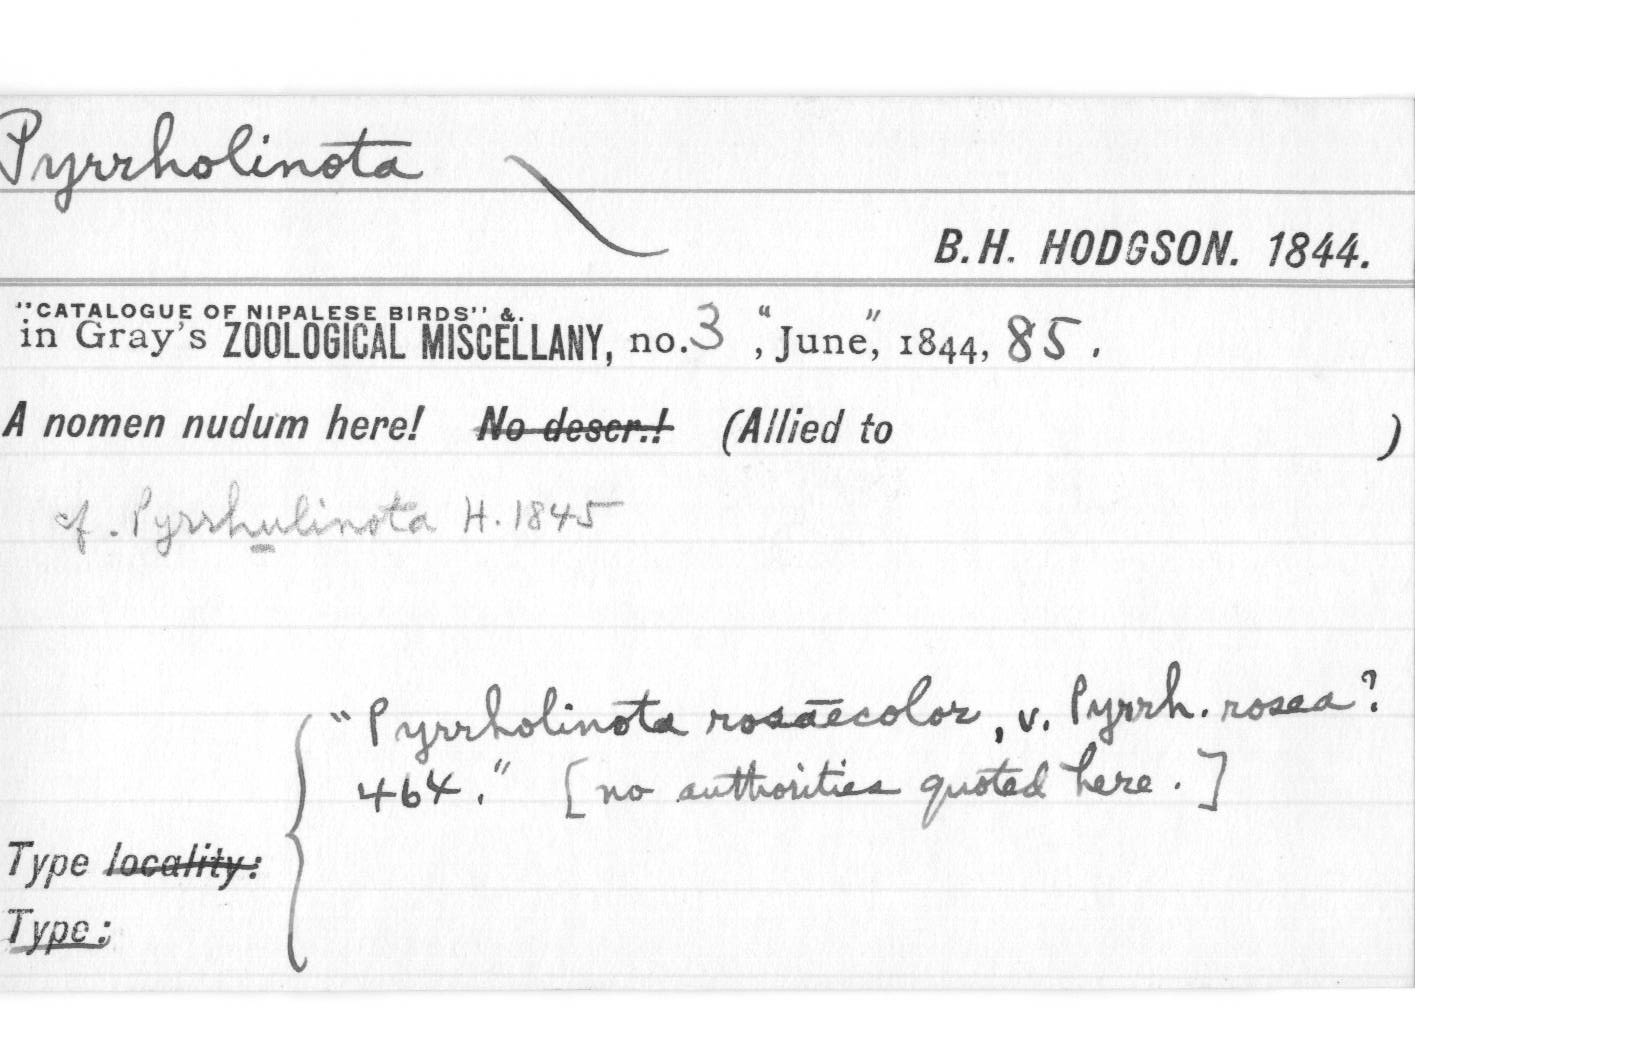 Pyrrholinota
B.H. HODGSON. 1844.
"CATALOGUE OF NIPALESE BIRDS" &.
in Gray's ZOOLOGICAL MISCELLANY, no. 3, "June", 1844, 85.
A nomen nudum here! No descr.! (Allied to )
cf. Pyrrhulinota H. 1845
"Pyrrholinota rosaecolor, v. Pyrrh. rosea?
464." [no authorities quoted here.]
Type locality:
Type: